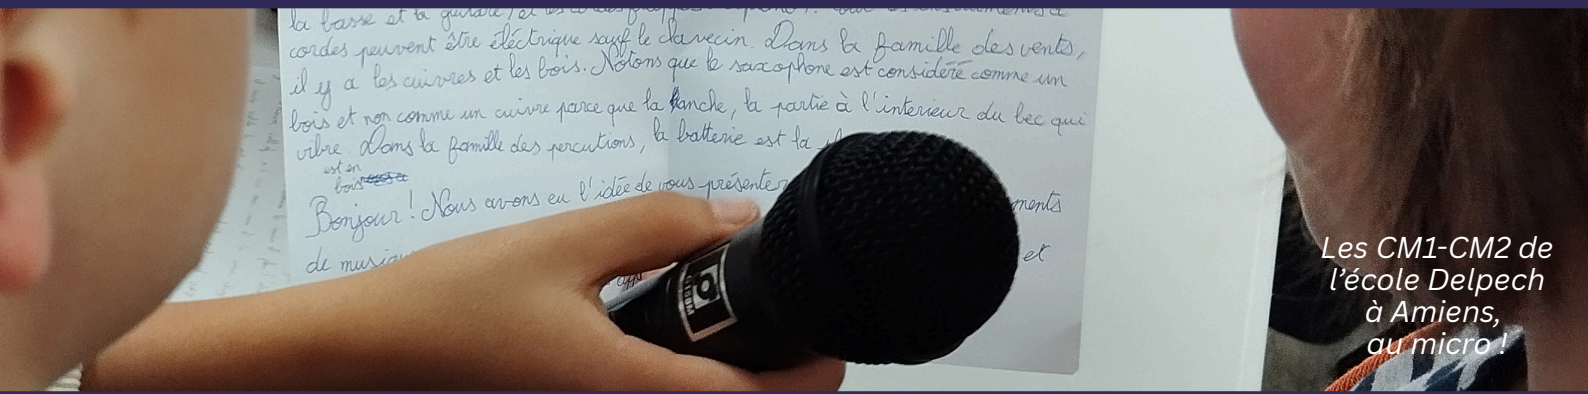 la basse et la guitare) et les cordes
cordes peuvent être éléctrique sauf le clavecin. Dans la famille des vents,
il y a les cuivres et les bois. Notons que le saxophone est considéré comme un
bois et non comme un cuivre parce que la hanche, la partie à l'interieur du bec qui
vibre. Dans la famille des percutions, la batterie est la
est en
bois
Bonjour! Nous avons eu l'idée de vous présenter ments
de musique et
Les CM1-CM2 de
l'école Delpech
à Amiens,
au micro !